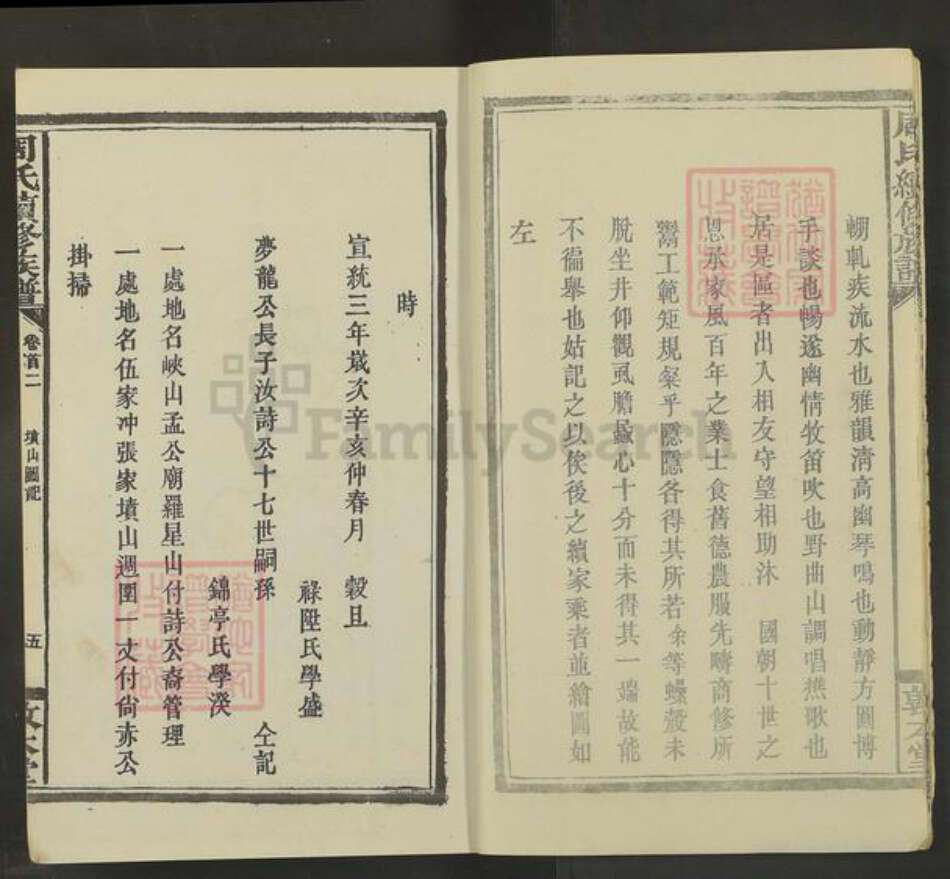 周氏續修族譜
輞軋疾流水也雅韻清高幽琴鳴也動靜方圓博
手談也暢遂幽情牧笛吹也野曲山調唱樵歌也
居是區者出入相友守望相助沐 國朝十世之
恩承家風百年之業士食舊德農服先疇商修所
鬻工範矩規粲乎隱隱各得其所若余等蠖殼未
脫坐井仰觀虱膽蝨心十分而未得其一端故能
不徧舉也姑記之以俟後之續家乘者並繪圖如
左
時
宣統三年嵗次辛亥仲春月 穀旦
祿陞氏學盛
夢龍公長子汝詩公十七世嗣孫 仝記
錦亭氏學湀
一處地名峽山孟公廟羅星山付詩公裔管理
一處地名伍家冲張家墳山週圍一丈付尙赤公
掛掃
周氏續修族譜 卷首二 墳山圖記 五 敦本堂
FamilySearch